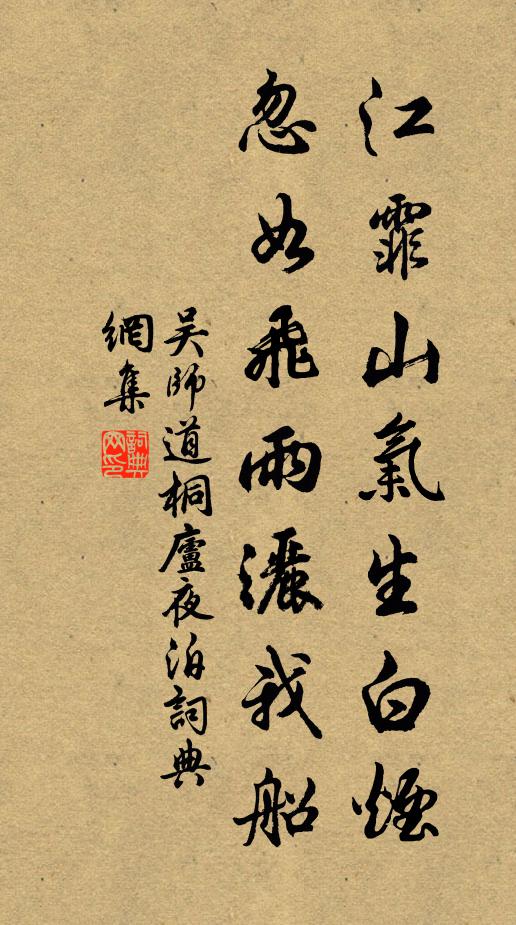 江霏山氣生白煙
忽如飛雨灑我船
吳師道桐廬夜泊詞典
網集
詞典網印